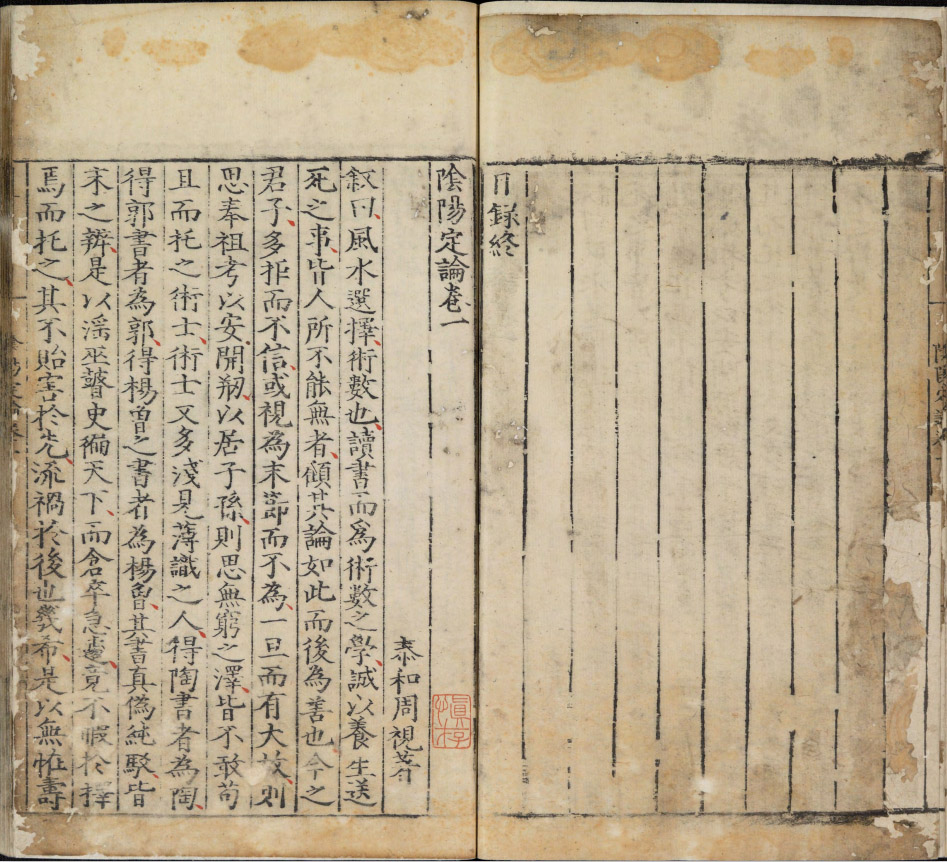 目錄終
陰陽定論卷一
泰和周視著
叙曰風水選擇術數也讀書而爲術數之學誠以養生送
死之事皆人所不能無者顧其論如此而後為善也今之
君子多拒而不信或視為末節而不為一旦而有大故則
思奉祖考以安開剏以居子孫則思無窮之澤皆不敢苟
且而托之術士術士又多淺見薄識之人得陶書者為陶
得郭書者為郭得楊曾之書者為楊曾其書真偽純駁皆
未之辨是以滛巫瞽史徧天下而倉卒急遽竟不暇於擇
焉而托之其不貽害於先流禍於後也幾希是以無恠壽